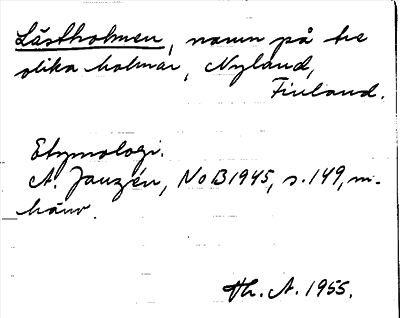 Låstholmen, namn på tre
olika holmar, Nyland,
Finland.
Etymologi.
A. Janzén, NoB 1945, s. 149, m.
hänv.
Th. A. 1955.